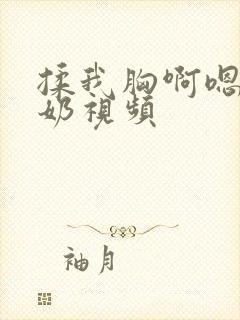 揉我胸啊嗯
奶視頻
袖月